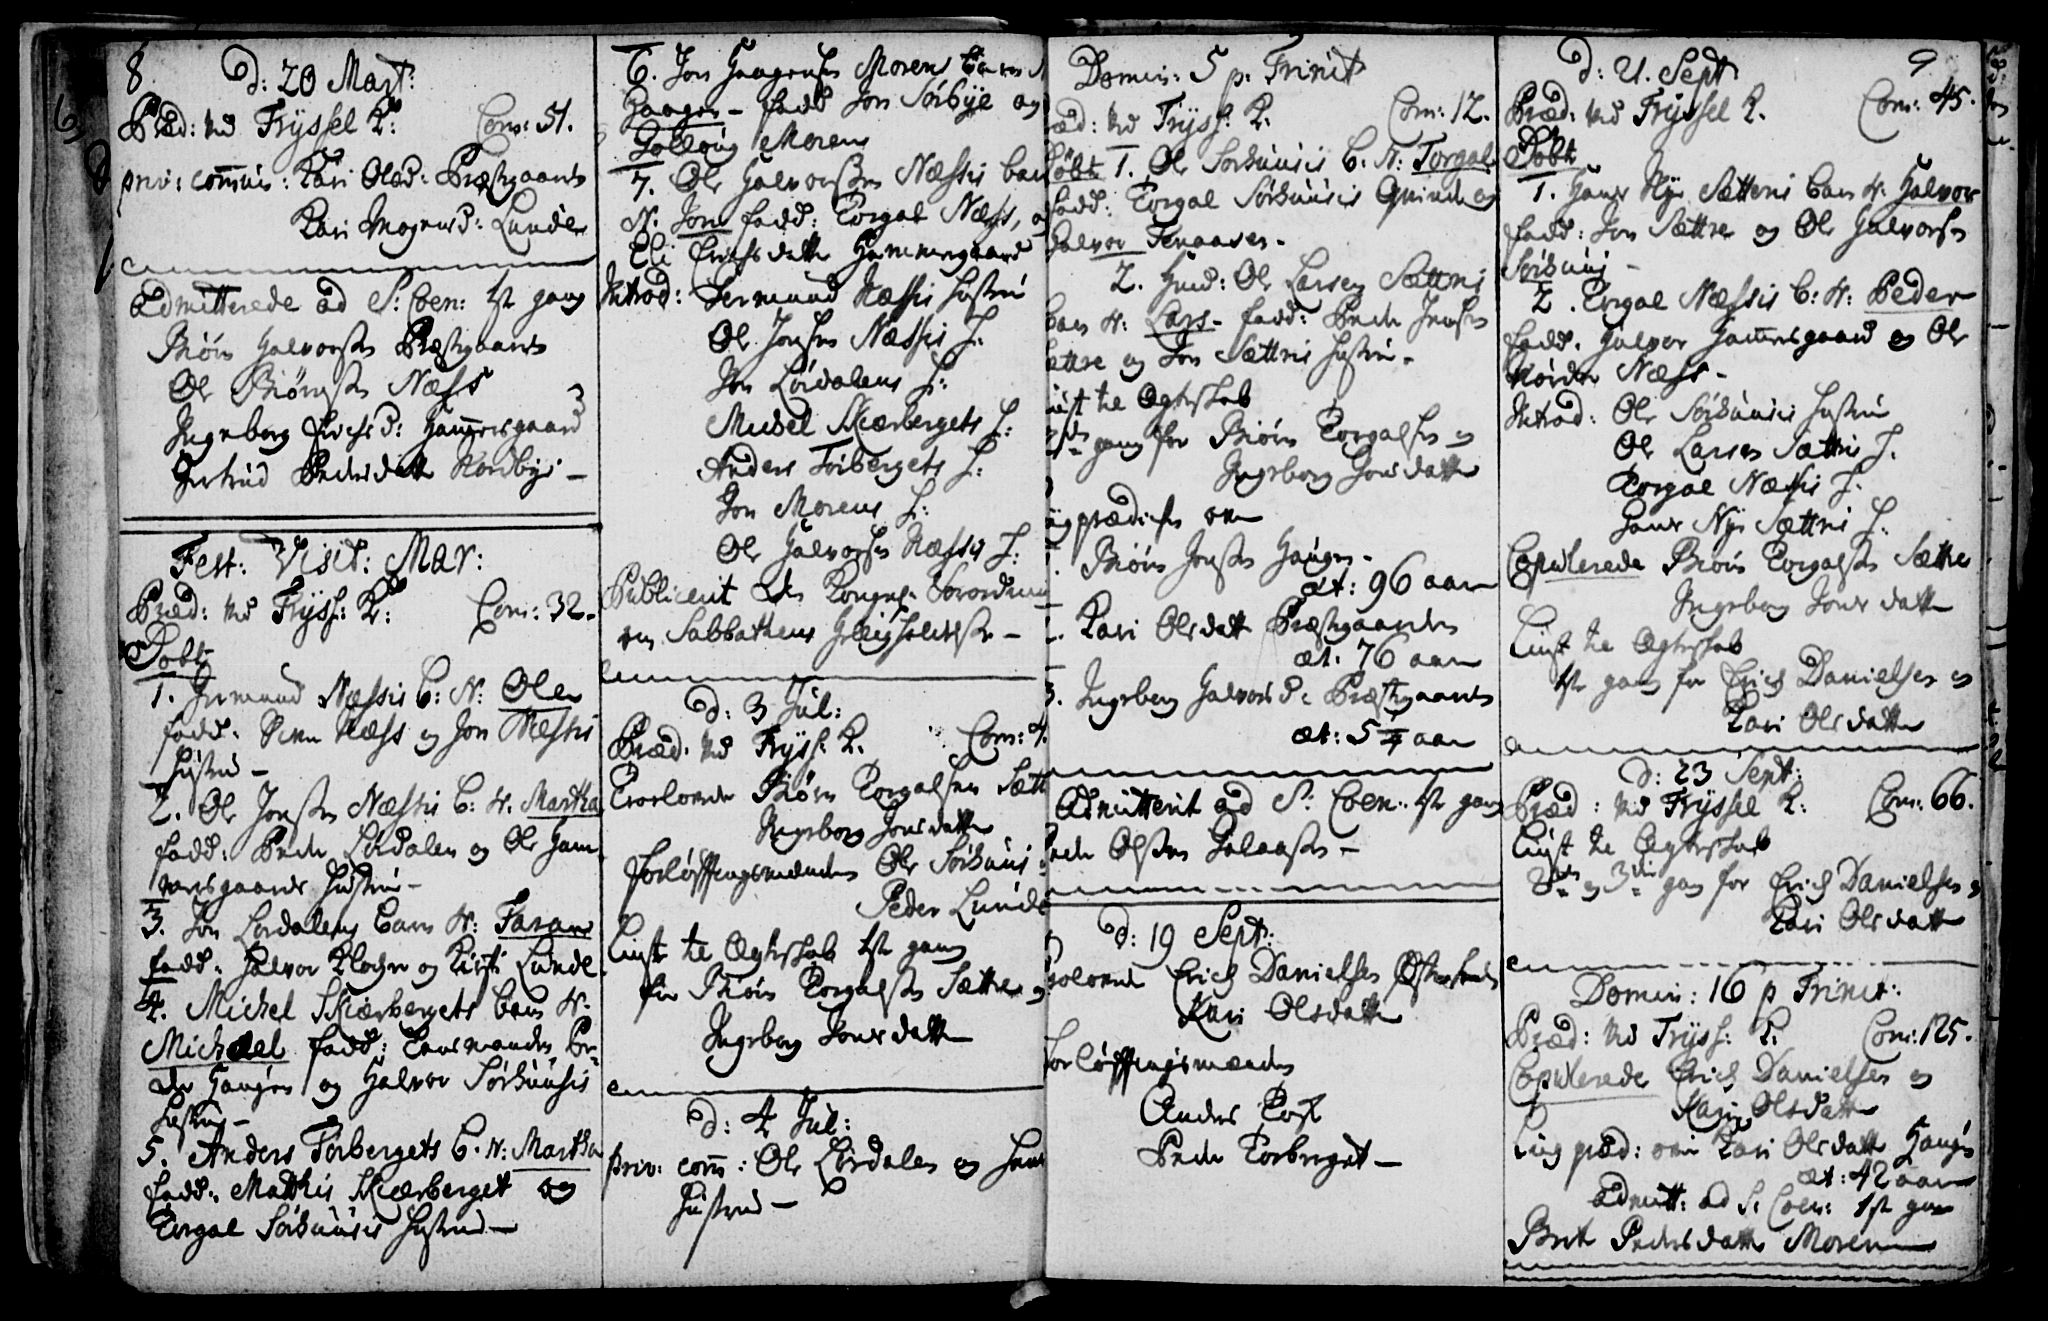 8.
d: 20 Mart:
Præd: ved Tryssel K: Com: 51.
priv: commun: Kari Olsd: Præstgaard
Kari Mogensd: Lunde
Admitterede ad S: Coen: 1st gang
Biörn Halvorsen Præstgaard
Ole Biörnsen Næss
Ingeborg Erichsd: Hammersgaard
Gertrud Pedersdatter Nordbye –
Fest: Visit: Mar:
Præd: ved Tryss: K: Com: 32.
Döbt
1. Germund Næssis b: N: Ole
fadd: Næss og Jon Næssis
Hustrue –
2. Ole Jonsen Næssis b: N: Martha
fadd: Peder Lördalen og Ole Ham
mersgaards Hustrue –
3. Jon Lördalens barn N: Faran
fadd: Halvor Klocher og Kirsti Lunde
4. Michel Skiærbergets barn N:
Michael fadd: Pe-
der Haugen og Halvor Sörhuusis
Hustrue –
5. Anders Törbergets b: N: Martha
fadd: Matthis Skiærberget og
Torgal Sörhuusis Hustrue –
6. Jon Haagensen Morens barn N
Haagen – fadd Jon Sörbye og
Sollöug Moren
7. Ole Halvorsen Næssis barn
N. Jon fadd: Torgal Næss, og
Eli Erichsdatter Hammersgaard
Introd: Germund Næssis Hustrue
Ole Jonsen Næssis H:
Jon Lördalens H:
Michel Skiærbergets H:
Anders Törbergets H:
Jon Morens H:
Ole Halvorsen Næssis H:
Publicerit den Kongel. Forordning
om Sabbathens Helligholdelse –
d: 3 Jul:
Præd: ved Tryss: K. Com: 7.
Trolovede Biörn Torgalsen Sætt
Ingeborg Jonsdatter
Forlöffningsmænden Ole Sörhuus
Peder Lunde
Liust til Ægteskab 1st gang
for Biörn Torgalsen Sættre og
Ingeborg Jonsdatter
d: 4 Jul:
priv: comm: Ole Lördalen og Hans
Hustrue –
Domin: 5 p. Trinit
æd: ved Tryss: K. Com: 12.
Döbt 1. Ole Sörhuusis b: N: Torgal
fadd: Torgal Sörhuusis Quinde og
Halvor Tenaasen –
2. Ole Larsen Sættris
barn N: Lars – fadd: Peder Jensen
Sættre og Jon Sættris Hustrue –
Liust til Ægteskab
gang for Biörn Torgalsen og
Ingeborg Jonsdatter
Ligprædichen over
Biörn Jonsen Haugen –
æt: 96 aar
2. Kari Olsdatter Præstgaarden
æt: 76 aar
3. Ingeborg Halvorsd: Præstgaard
æt: 5 aar
Admitterit ad S: Coen: 1st gang
Peder Olsen Galaasen –
d: 19 Sept:
Trolovede Erich Danielsen
Kari Olsdatter
Forlöffningsmænden
Anders
Peder Törberget –
9
d: 21. Sept
Præd: ved Tryssel K. Com: 45.
Döbt
1. Hans Nye Sættris barn N: Halvor
fadd: Jon Sættre og Ole Halvorsen
Sörhuus –
2. Torgal Næssis b: N: Peder
fadd: Halvor Hammersgaard og Ole
Næss –
Introd: Ole Sörhuusis Hustrue
Ole Larsen Sættris H.
Torgal Næssis H.
Hans Nye Sættris H.
Copulerede Biörn Torgalsen Sættre
Ingeborg Jonsdatter
Liust til Ægteskab
1st gang for Erich Danielsen og
Kari Olsdatter
d: 23 Sept:
Præd: ved Tryssel K: Com: 66.
Liust til Ægteskab
2den og 3die gang for Erich Danielsen og
Kari Olsdatter
Domin: 16 p Trinit:
Præd: ved Tryss: K. Com: 125.
Copulerede Erich Danielsen og
Kari Olsdatter
Lig præd: over Kari Olsdatter Haugen
æt: 42 aar
Admitt: ad S: Coen: 1st gang
Brit Pedersdatter Moren